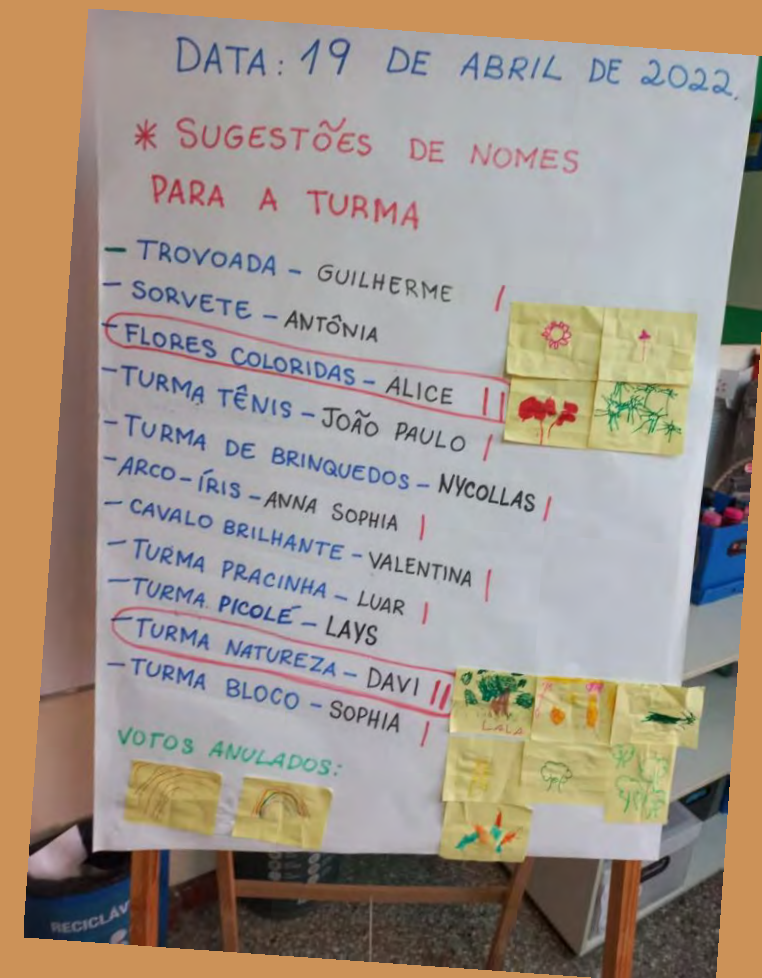 DATA: 19 DE ABRIL DE 2022.
* SUGESTÕES DE NOMES
PARA A TURMA
– TROVOADA – GUILHERME |
– SORVETE – ANTÔNIA
– FLORES COLORIDAS – ALICE ||
– TURMA TÊNIS – JOÃO PAULO |
– TURMA DE BRINQUEDOS – NYCOLLAS |
– ARCO-ÍRIS – ANNA SOPHIA |
– CAVALO BRILHANTE – VALENTINA |
– TURMA PRACINHA – LUAR |
– TURMA PICOLÉ – LAYS
– TURMA NATUREZA – DAVI ||
– TURMA BLOCO – SOPHIA |
LALA
VOTOS ANULADOS:
RECICLÁV